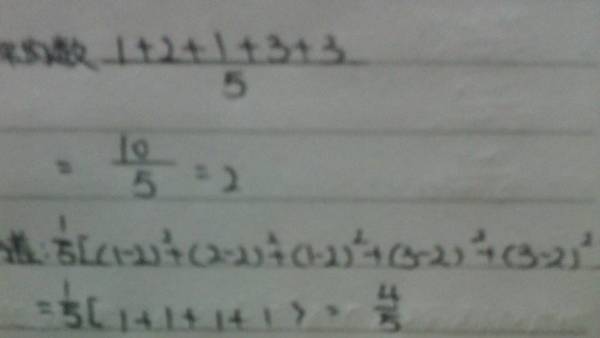 平均数 (1+2+1+3+3)/5
= 10/5 = 2
差: 1/5[(1-2)²+(2-2)²+(1-2)²+(3-2)²+(3-2)²
= 1/5[1+1+1+1) = 4/5